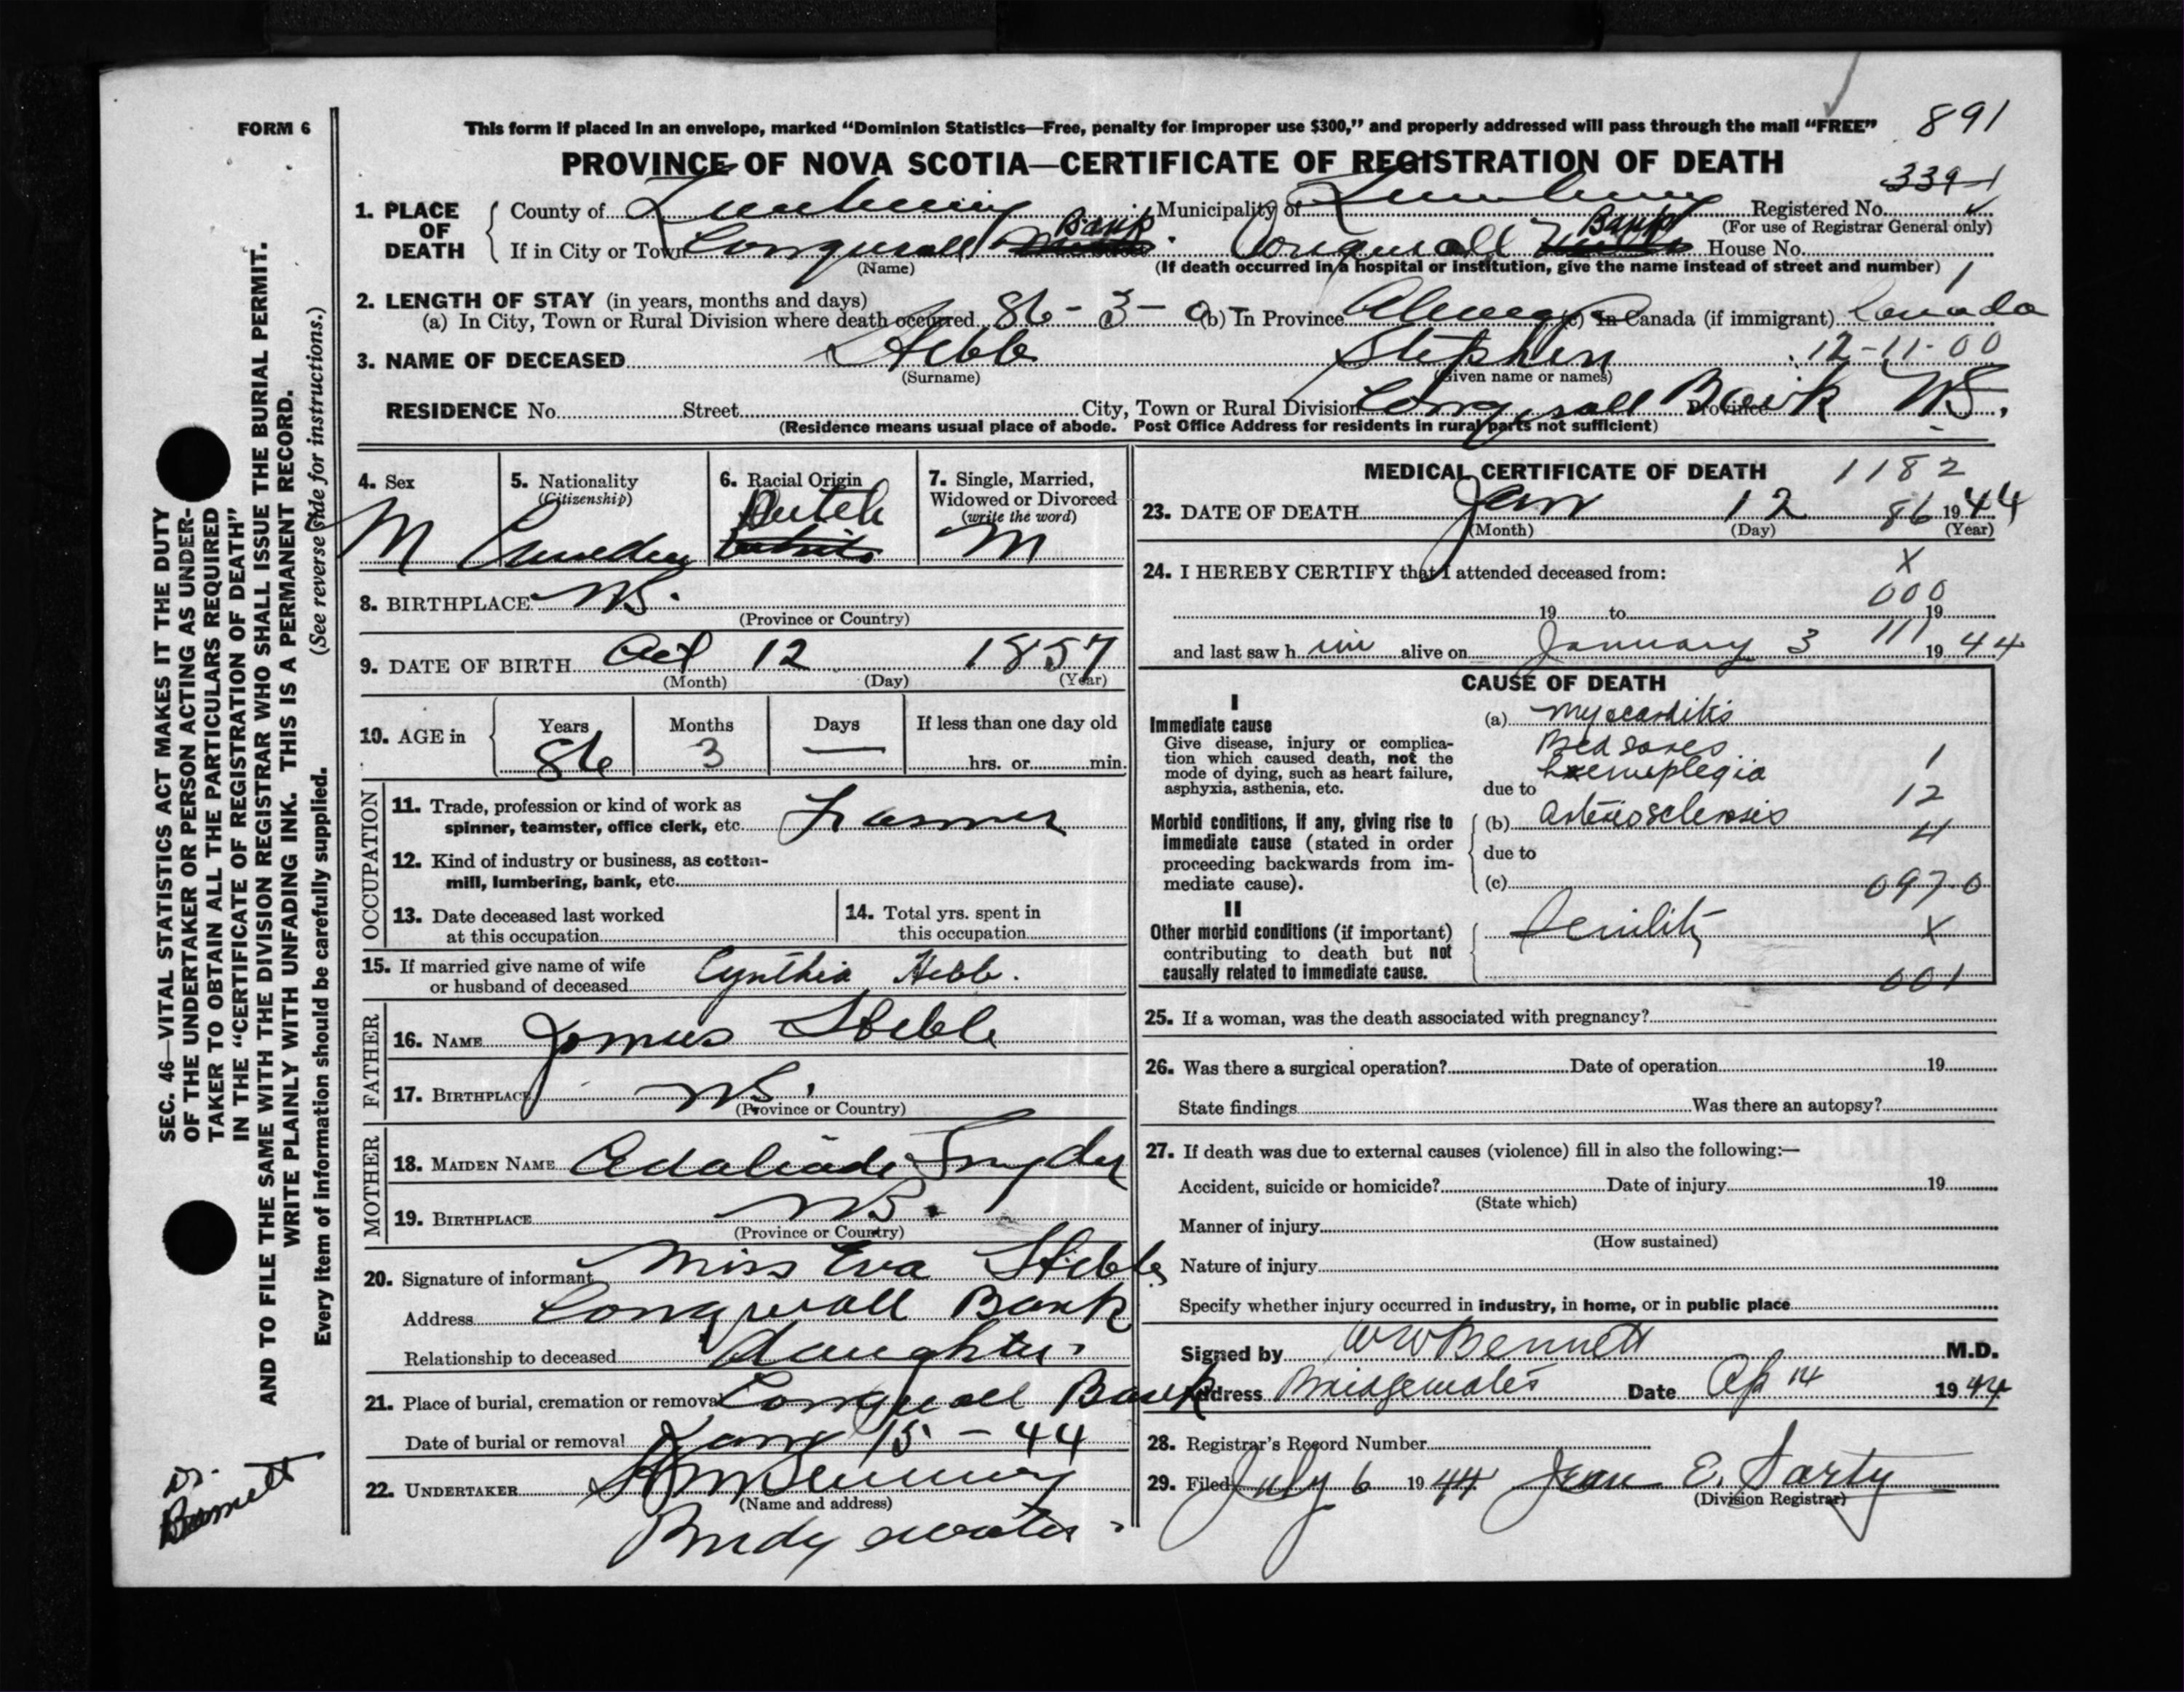 FORM 6
This form if placed in an envelope, marked “Dominion Statistics—Free, penalty for improper use $300,” and properly addressed will pass through the mail “FREE” 891
PROVINCE OF NOVA SCOTIA—CERTIFICATE OF REGISTRATION OF DEATH
339-1
1. PLACE OF DEATH
County of Lunenburg Municipality of Lunenburg Registered No.
(For use of Registrar General only)
If in City or Town Conquerall Bank Conquerall Bank House No.
(Name) (If death occurred in a hospital or institution, give the name instead of street and number) 1
2. LENGTH OF STAY (in years, months and days)
(a) In City, Town or Rural Division where death occurred 86 - 3 - 0 (b) In Province Always (c) In Canada (if immigrant) Canada
3. NAME OF DECEASED Hebb Stephen 12-11-00
(Surname) (Given name or names)
RESIDENCE No. Street City, Town or Rural Division Conquerall Bank Province N.S.
(Residence means usual place of abode. Post Office Address for residents in rural parts not sufficient)
4. Sex M
5. Nationality (Citizenship) Canadian
6. Racial Origin Dutch
7. Single, Married, Widowed or Divorced (write the word) M
8. BIRTHPLACE N.S.
(Province or Country)
9. DATE OF BIRTH Oct 12 1857
(Month) (Day) (Year)
10. AGE in Years Months Days If less than one day old
86 3 — hrs. or min.
OCCUPATION
11. Trade, profession or kind of work as
spinner, teamster, office clerk, etc. Farmer
12. Kind of industry or business, as cotton-
mill, lumbering, bank, etc.
13. Date deceased last worked
at this occupation
14. Total yrs. spent in
this occupation
15. If married give name of wife
or husband of deceased Cynthia Hebb.
FATHER
16. NAME James Hebb
17. BIRTHPLACE N.S.
(Province or Country)
MOTHER
18. MAIDEN NAME Adaliade Snyder
19. BIRTHPLACE N.S.
(Province or Country)
20. Signature of informant Miss Eva Hebb
Address Conquerall Bank
Relationship to deceased daughter
21. Place of burial, cremation or removal Conquerall Bank
Date of burial or removal 15 - 44
22. UNDERTAKER
(Name and address)
Bridgewater
MEDICAL CERTIFICATE OF DEATH 1182
23. DATE OF DEATH Jan 12 86 1944
(Month) (Day) (Year)
24. I HEREBY CERTIFY that I attended deceased from: X
000
19 to 19
and last saw h im alive on January 3 111 1944
CAUSE OF DEATH
I
Immediate cause
Give disease, injury or complica-
tion which caused death, not the
mode of dying, such as heart failure,
asphyxia, asthenia, etc.
(a) Myocarditis
Bed sores 1
Haemiplegia
due to 12
Morbid conditions, if any, giving rise to
immediate cause (stated in order
proceeding backwards from im-
mediate cause).
(b) Arteriosclerosis
due to
(c) 097.0
II
Other morbid conditions (if important)
contributing to death but not
causally related to immediate cause.
Senility X
001
25. If a woman, was the death associated with pregnancy?
26. Was there a surgical operation? Date of operation 19
State findings Was there an autopsy?
27. If death was due to external causes (violence) fill in also the following:—
Accident, suicide or homicide? Date of injury 19
(State which)
Manner of injury
(How sustained)
Nature of injury
Specify whether injury occurred in industry, in home, or in public place
Signed by W W Bennett M.D.
Address Bridgewater Date Ap 14 1944
28. Registrar's Record Number
29. Filed July 6 1944 Jean E. Sarty
(Division Registrar)
SEC. 46—VITAL STATISTICS ACT MAKES IT THE DUTY
OF THE UNDERTAKER OR PERSON ACTING AS UNDER-
TAKER TO OBTAIN ALL THE PARTICULARS REQUIRED
IN THE “CERTIFICATE OF REGISTRATION OF DEATH”
AND TO FILE THE SAME WITH THE DIVISION REGISTRAR WHO SHALL ISSUE THE BURIAL PERMIT.
WRITE PLAINLY WITH UNFADING INK. THIS IS A PERMANENT RECORD.
Every item of information should be carefully supplied. (See reverse side for instructions.)
Dr. Bennett